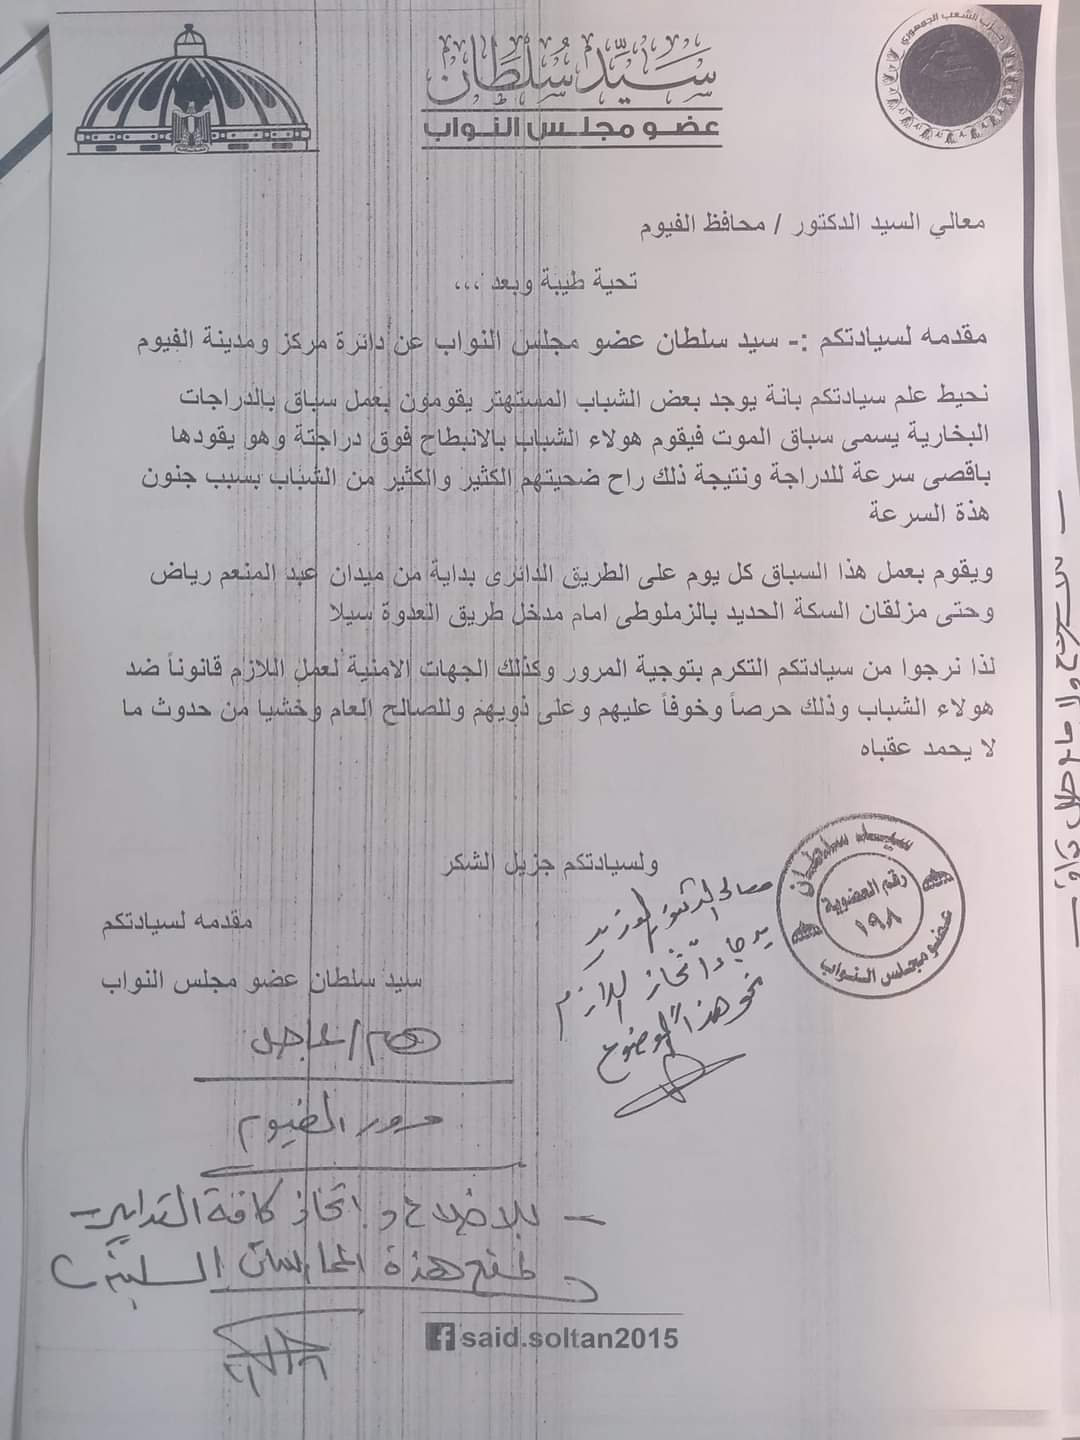 حزب الشعب الجمهوري
سيد سلطان
عضو مجلس النواب
معالي السيد الدكتور / محافظ الفيوم
تحية طيبة وبعد ،،،
مقدمه لسيادتكم :- سيد سلطان عضو مجلس النواب عن دائرة مركز ومدينة الفيوم
نحيط علم سيادتكم بانة يوجد بعض الشباب المستهتر يقومون بعمل سباق بالدراجات
البخارية يسمى سباق الموت فيقوم هولاء الشباب بالانبطاح فوق دراجتة وهو يقودها
باقصى سرعة للدراجة ونتيجة ذلك راح ضحيتهم الكثير والكثير من الشباب بسبب جنون
هذة السرعة
ويقوم بعمل هذا السباق كل يوم على الطريق الدائرى بداية من ميدان عبد المنعم رياض
وحتى مزلقان السكة الحديد بالزملوطى امام مدخل طريق العدوة سيلا
لذا نرجوا من سيادتكم التكرم بتوجية المرور وكذلك الجهات الامنية لعمل اللازم قانوناً ضد
هولاء الشباب وذلك حرصاً وخوفاً عليهم وعلى ذويهم وللصالح العام وخشيا من حدوث ما
لا يحمد عقباه
ولسيادتكم جزيل الشكر
سيد سلطان
رقم العضوية
١٩٨
عضو مجلس النواب
معالى الدكتور الوزير
برجاء اتخاذ اللازم
نحو هذا الموضوع
مقدمه لسيادتكم
سيد سلطان عضو مجلس النواب
هام/عاجل
مرور الفيوم
- للاطلاع و اتخاذ كافة التدابير
لمنع هذة الممارسات السلبية
said.soltan2015